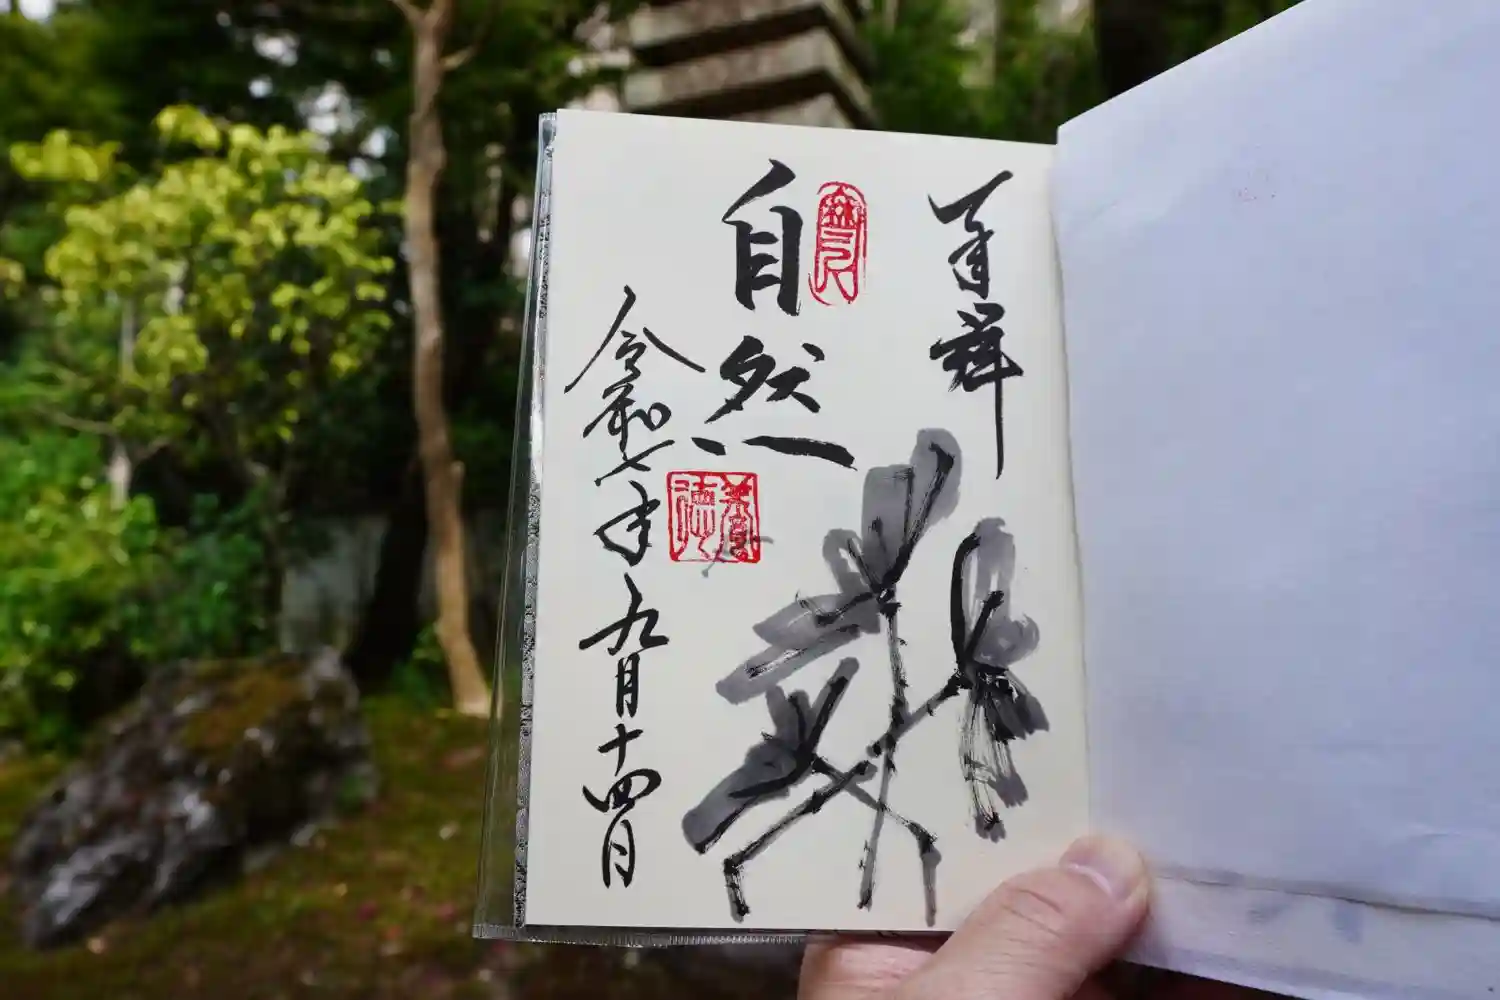 奉拝
自然
令和七年九月十四日
養徳